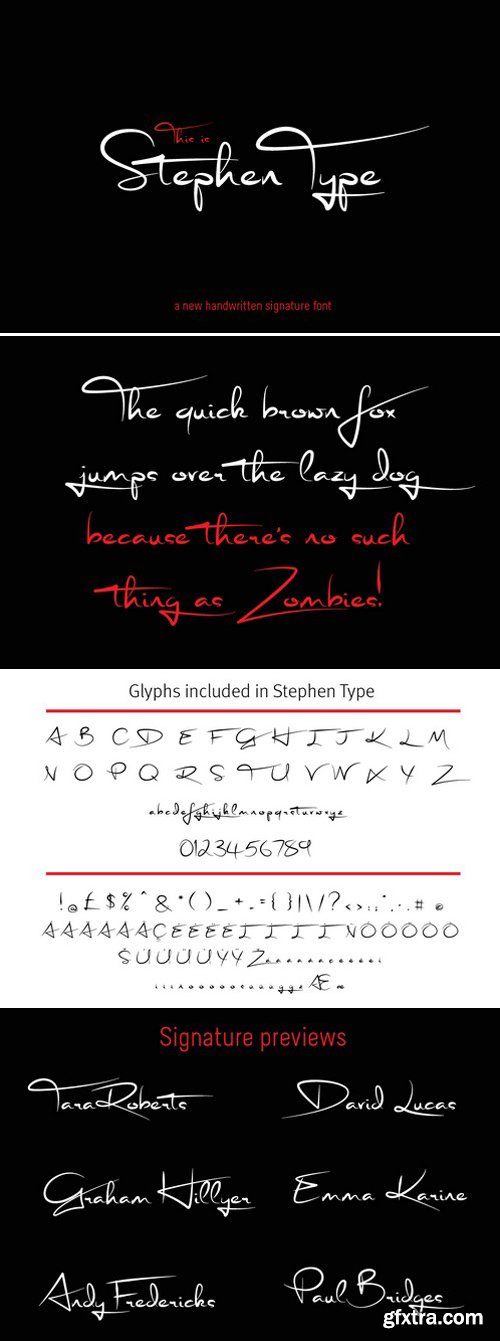 This is
Stephen Type
a new handwritten signature font
The quick brown fox
jumps over the lazy dog
because there's no such
thing as Zombies!
Glyphs included in Stephen Type
A B C D E F G H I J K L M
N O P Q R S T U V W X Y Z
abcdefghijklmnopqrstuvwxyz
0123456789
Signature previews
Tara Roberts
David Lucas
Graham Hillyer
Emma Karine
Andy Fredericks
Paul Bridges
gfxtra.com